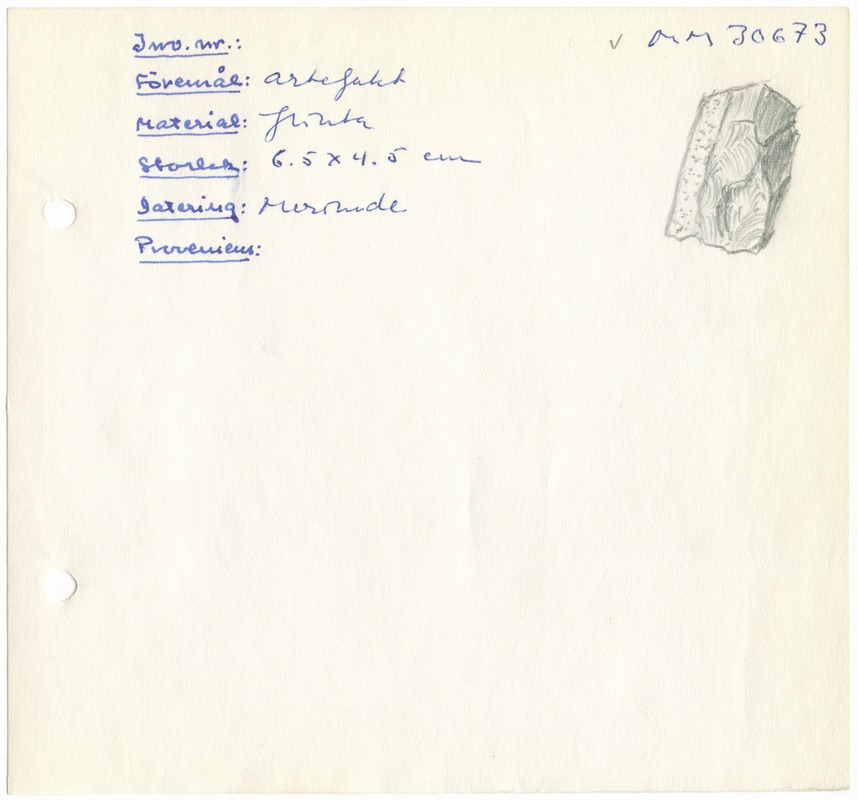 Inv. nr.: √ MM 30673
Föremål: artefakt
Material: flinta
Storlek: 6.5 x 4.5 cm
Datering: Merimde
Proveniens: